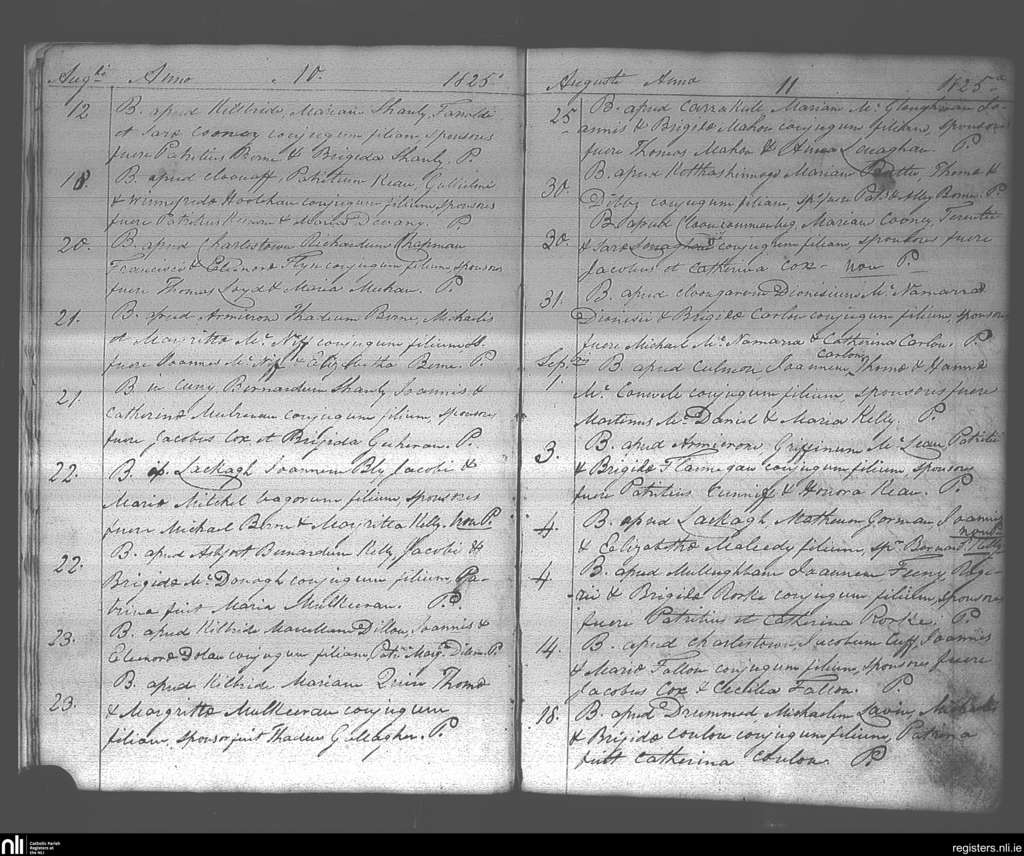 Augti Anno 10. 1825.
12 B. apud Kilbride, Mariam Shanly, Farrelli
et Saræ Cooney conjugum filiam, sponsores
fuere Patritius Berne & Brigida Shanly. P.
18. B. apud Patritium Kean, Gulielmi
& Winnifridæ Hoolehan conjugum filium, sponsores
fuere Patritius Kenan & Maria P.
20. B. apud Charlestown Richardum Chapman
Francisci & Elleonoræ Flyn conjugum filium, sponsores
fuere Thomas Loyd & Maria Meehan. P.
21. B. apud Armieron Thadeum Berne, Michaelis
et Margrittæ Mc Niff conjugum filium
fuere Joannes Mc Niff & Elizabetha Berne. P.
21 B. in Cuny Bernardum Shanly Joannis &
Catherinæ Mulrenan conjugum filium, sponsores
fuere Jacobus Cox et Brigida P.
22. B. Lackagh Joannem Bly Jacobi &
Mariæ Mitchel vagorum filium, sponsores
fuere Michael Berne & Margritta Kelly. Non P.
22. B. apud Bernardum Kelly Jacobi &
Brigidæ Mc Donagh conjugum filium, Pa-
trina fuit Maria Mulkeeran. P.
23. B. apud Kilbride Marcellam Dillon, Joannis &
Eleonoræ Dolan conjugum filiam, Patr. Marg. Dillon. P.
23. B. apud Kilbride Mariam Quinn Thomæ
& Margrittæ Mulkeeran conjugum
filiam, sponsor fuit Thadeus Gallagher. P.
Augusti Anno 11 1825.
25 B. apud Carrakeel Mariam Mc Gloughman Jo-
annis & Brigidæ Mahon conjugum filiam, sponsores
fuere Thomas Mahon & Anna Lenaghan. P.
30. B. apud Mariam Beatty, Thomæ &
Dibby conjugum filiam, sp. fuere Pat. & Ally Berne. P.
30. B. apud Mariam Cooney, Terentii
& Saræ Lenaghan conjugum filiam, sponsores fuere
Jacobus et Catherina Cox - non P.
31. B. apud Dionisium Mc Namarra
Dionisii & Brigidæ Carlon conjugum filium, sponsores
fuere Michael Mc Namara & Catherina Carlon. P.
Sepris 1. B. apud Culmon, Joannem Carlon Thomæ & Hannæ
Mc conjugum filium, sponsores fuere
Martinus Mc Daniel & Maria Kelly. P.
3. B. apud Armieron Griffinum Mc Lean Patritii
& Brigidæ Flannegan conjugum filium sponsores
fuere Patritius Cunniff & Honora Kean. P.
4. B. apud Lackagh Matheum Gorman Joannis
& Eelizabethæ filium, spr. Bernard Kelly non P.
4. B. apud Joannem Feeny Roge-
rii & Brigidæ Rorke conjugum filium, sponsores
fuere Patritius et Catherina Rorke. P.
14. B. apud Charlestown, Jacobum Cuff, Joannis
& Mariæ Fallon conjugum filium, sponsores fuere
Jacobus Cox & Cecilia Fallon. P.
18. B. apud Drummod Michaelem Lavin, Michaelis
& Brigidæ Conlon conjugum filium, Patrina
fuit Catherina Conlon P.
nli Catholic Parish Registers at the NLI
registers.nli.ie